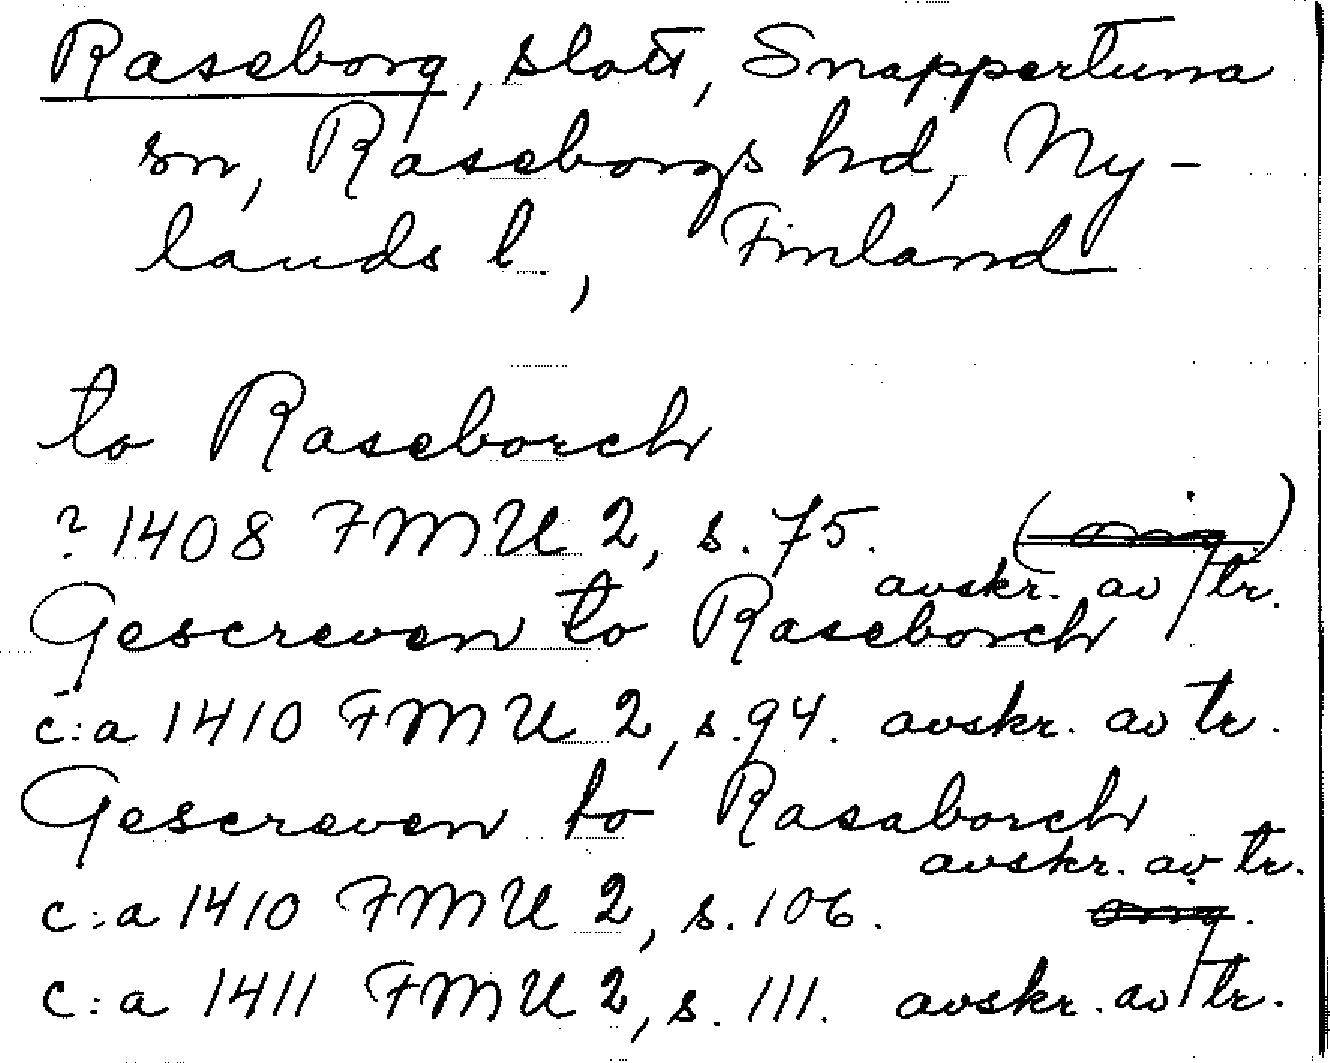 Raseborg, slott, Snappertuna
sn, Raseborgs hd, Ny-
lands l, Finland
to Raseborch
? 1408 FMU 2, s. 75. (orig)
avskr. av tr.
Gescreven to Raseborch
c:a 1410 FMU 2, s. 94. avskr. av tr.
Gescreven to Rasaborch
avskr. av tr.
c:a 1410 FMU 2, s. 106. orig.
c:a 1411 FMU 2, s. 111. avskr. av tr.